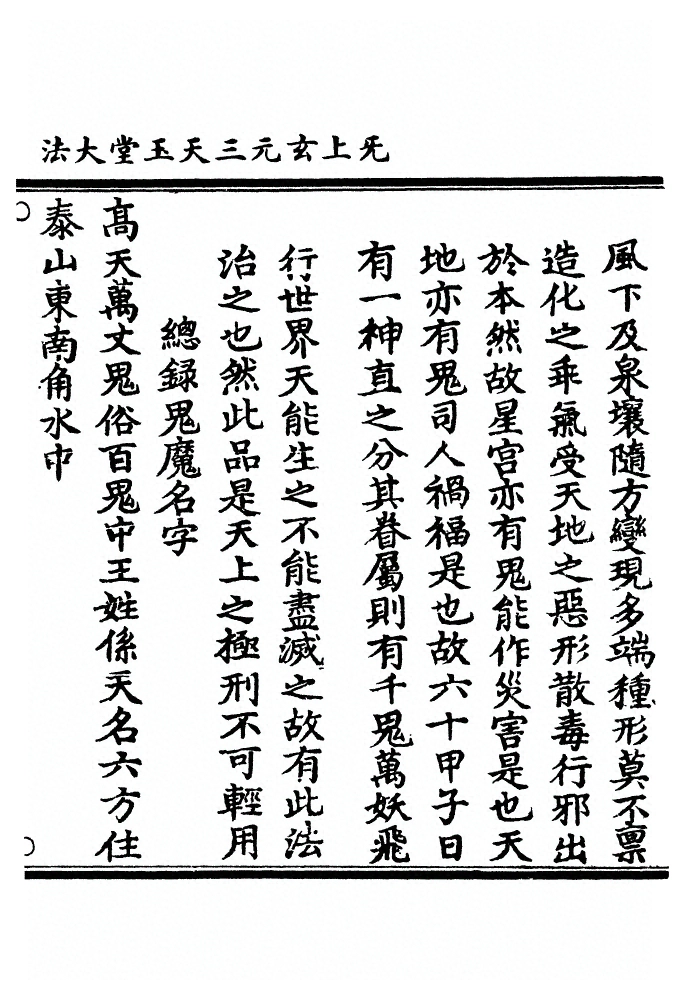 无上玄元三天玉堂大法
風下及泉壤隨方變現多端種形莫不禀
造化之乖氣受天地之惡形散毒行邪出
於本然故星宮亦有鬼能作災害是也天
地亦有鬼司人禍福是也故六十甲子日
有一神直之分其眷屬則有千鬼萬妖飛
行世界天能生之不能盡滅之故有此法
治之也然此品是天上之極刑不可輕用
總録鬼魔名字
髙天萬丈鬼俗百鬼中王姓係天名六方住
泰山東南角水中